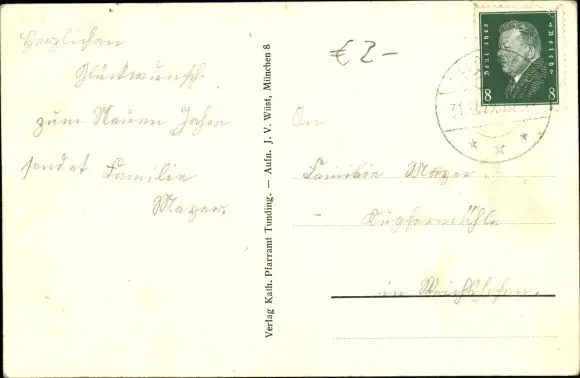 Herzlichen
Glückwunsch
zum Neuen Jahre
sendet Familie
Mayer.
Verlag Kath. Pfarramt Tunding. — Aufn. J. V. Wüst, München 8
€ 2-
Deutsches Reich
8 8
31.12.
An
Familie Mayer
Kupfermühle
in